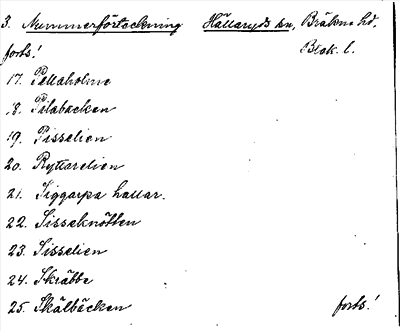 3. Nummerförteckning Hällaryds sn, Bräkne hd.
forts! Blek. l.
17. Pellaholme
18. Pilabacken
19. Pisselien
20. Ryttarelien
21. Siggarpa hallar.
22. Sisseknötten
23. Sisselien
24. Skräbbe
25. Skälbäcken forts!